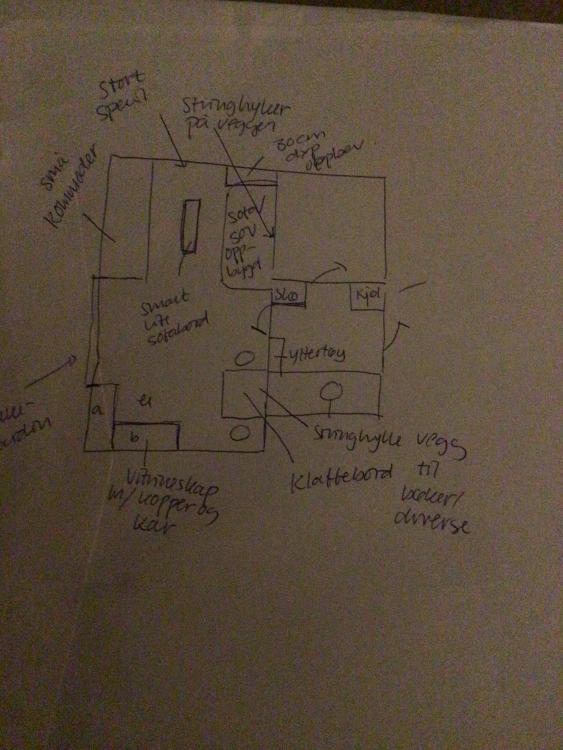 Stort
speil
Stringhyller
på veggen
30cm
dyp
oppbev
små
kommoder
sofa/
sov
opp-
bygd
smart
lite
sofabord
sko
kjøl
yttertøy
a
b
Vitrineskap
m/kopper og
kar
Stringhylle vegg
til
bøker/
diverse
Klaffebord